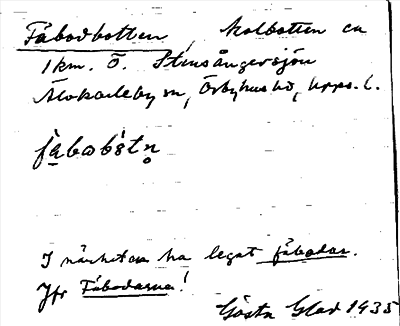 Fäbodbotten, kolbotten ca
1 km. Ö. Stensångersjön
Älvkarleby sn, Örbyhus hd, Upps. l.
fä̀bωbòtn̥
I närheten ha legat fäbodar.
Jfr Fäbodarna!
Gösta Glad 1935